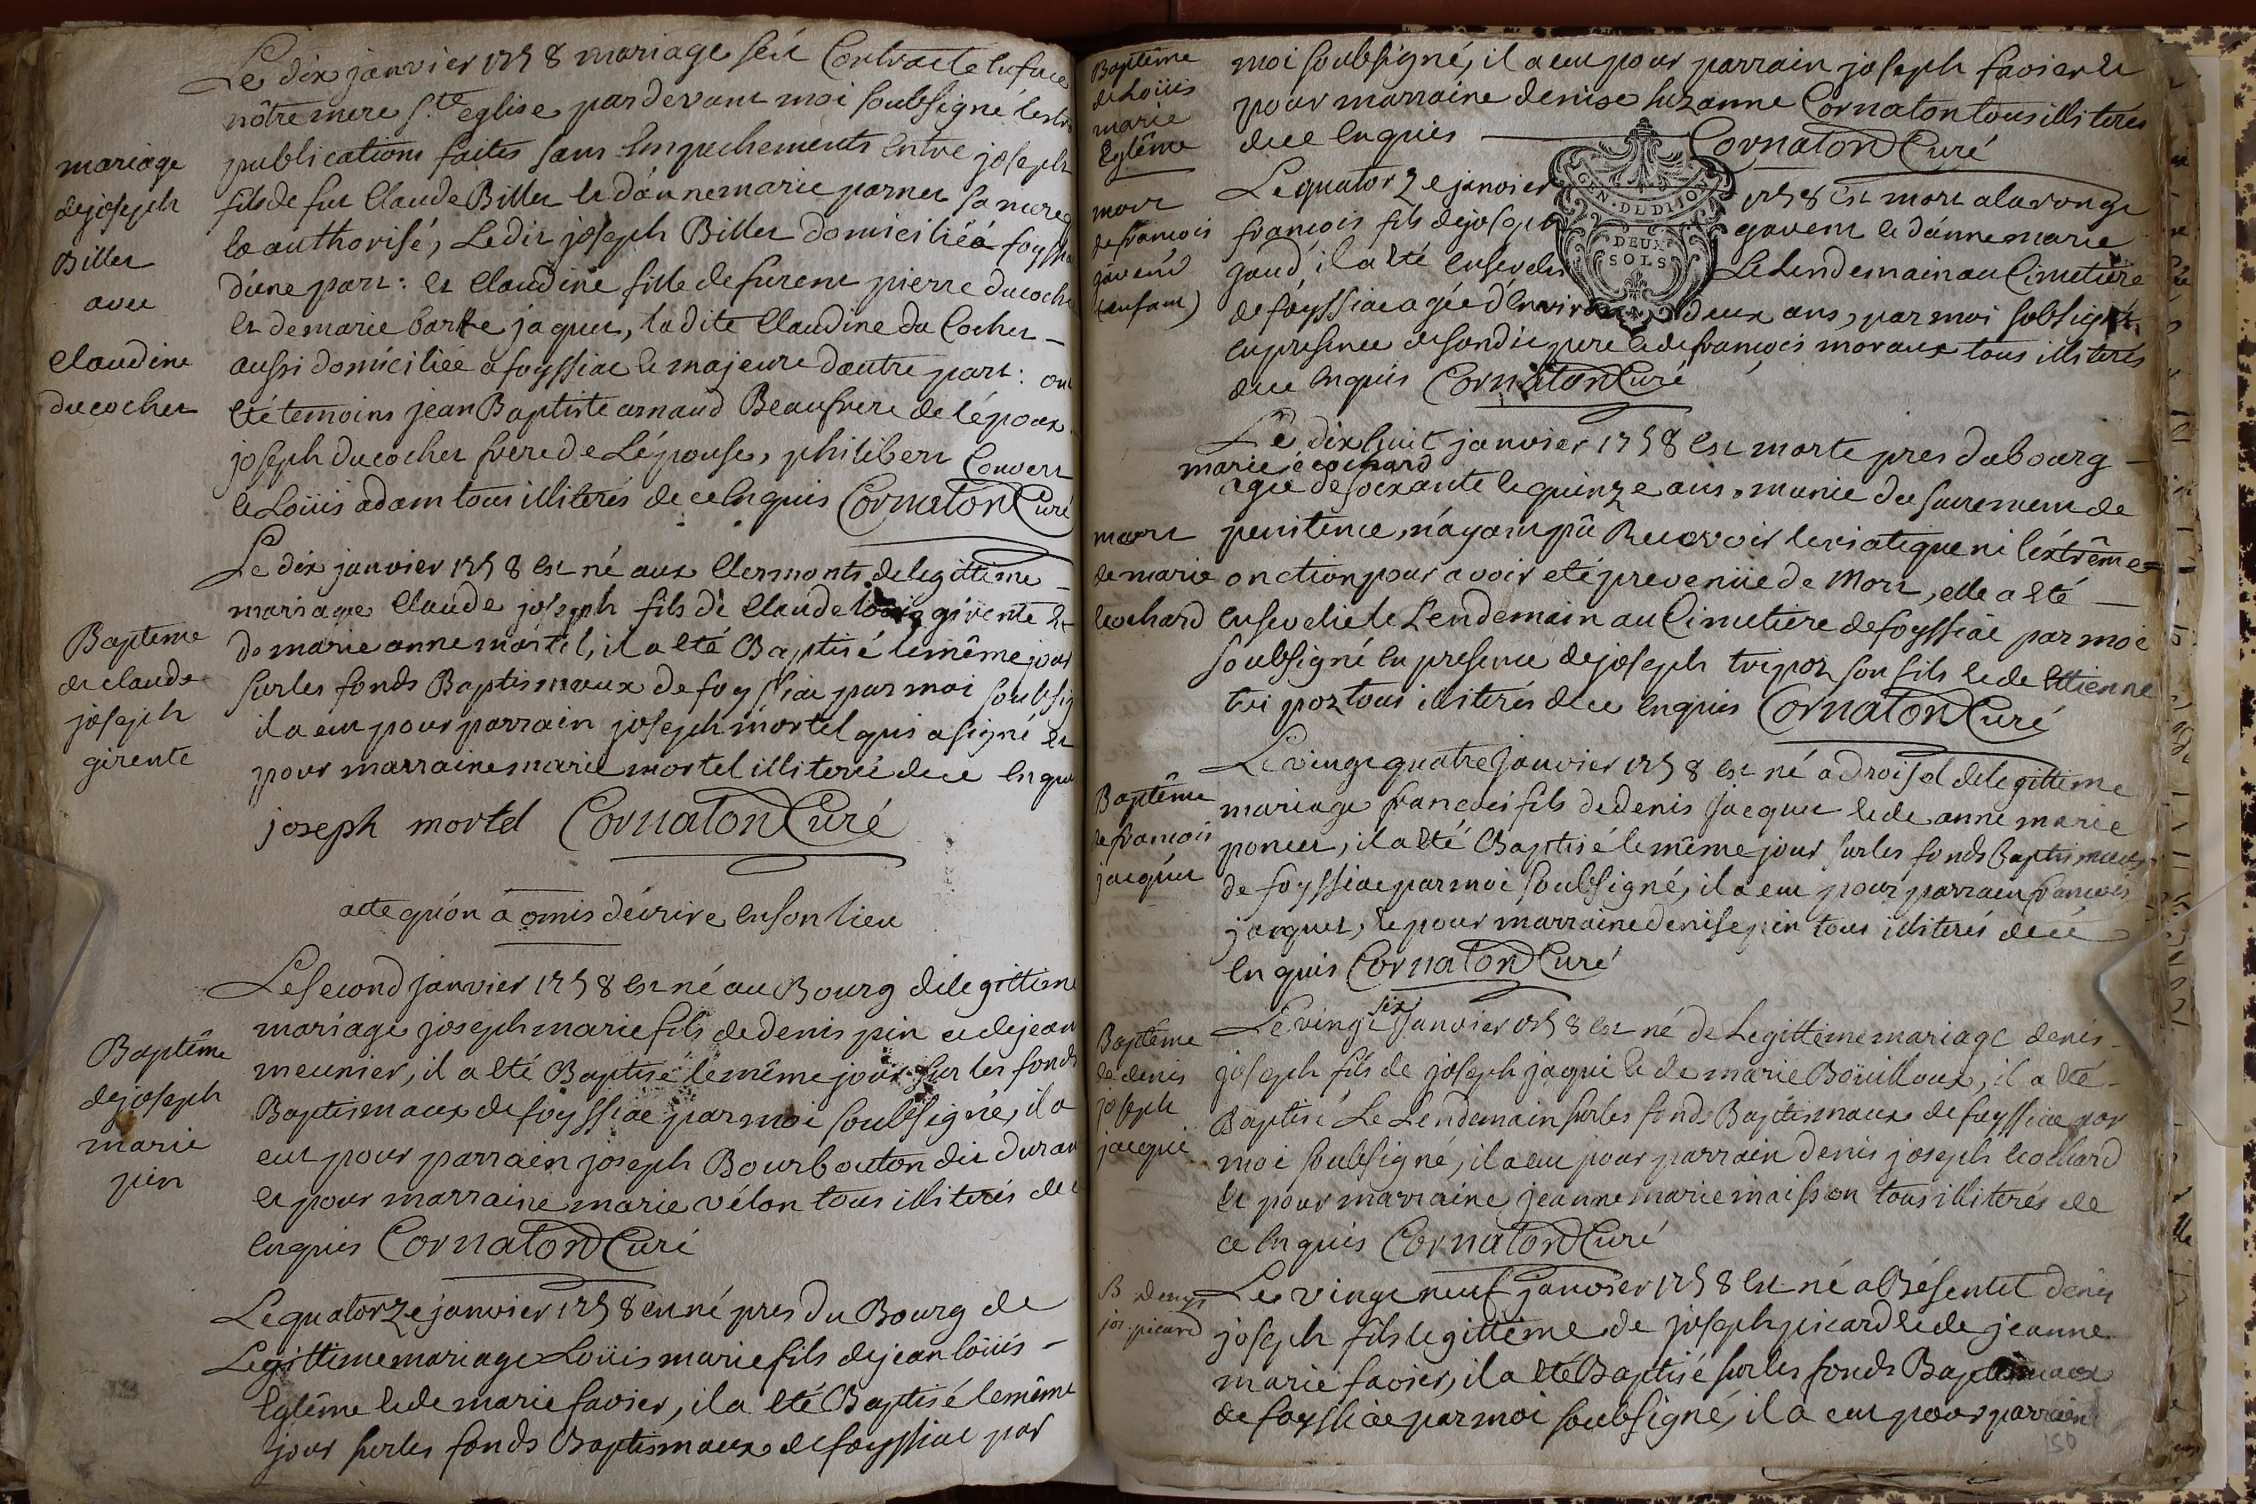 Le dix janvier 1758 mariage s'est Contracté en face
nôtre mere Ste eglise pardevant moi soubsigné les trois
publications faites sans Empechements entre joseph
fils de fut Claude Biller et d'anne marie parner sa mere
la authorisé, Ledit joseph Biller domicilié à foyssia
d'une part: et Claudine fille de furent pierre ducoche
et de marie barbe jaquet, la dite Claudine du Cocher
aussi domiciliée a foyssiac et majeure dautre part: ont
été temoins jean Baptiste arnaud Beaufrere de lépoux
joseph ducocher frere de Lépouse, philibert Convert
et Loüis adam tous illiterés de ce Enquis Cornaton Curé
mariage
de joseph
Biller
avec
Claudine
ducocher
Le dix janvier 1758 est né aux Clermonts de legittime
mariage Claude joseph fils de Claude loüis girente et
de marie anne mortel, il a été Baptisé le même jour
sur les fonds Baptismaux de foyssiac par moi soubsig
il a eut pour parrain joseph mortel qui a signé et
pour marraine marie mortel illiterée de ce Enqui
joseph mortel Cornaton Curé
Bapteme
de claude
joseph
girente
acte qu'on a omis décrire en son lieu
Le second janvier 1758 est né au Bourg de legittime
mariage joseph marie fils de denis pin et de jean
meunier, il a été Baptisé le même jour sur les fonds
Baptismaux de foyssiac par moi soubsigné, il a
eut pour parrain joseph Bourbouton dit duran
et pour marraine marie vélon tous illiterés de c
Enquis Cornaton Curé
Baptême
de joseph
marie
pin
Le quatorze janvier 1758 est né pres du Bourg de
Legittime mariage Loüis marie fils de jean loüis
Eglême et de marie favier, il a été Baptisé le même
jour sur les fonds Baptismaux de foyssiac par
Baptême
de Loüis
marie
Eglême
moi soubsigné, il a eut pour parrain joseph favier et
pour marraine denise suzanne Cornaton tous illiterés
de ce Enquis Cornaton Curé
mort
de francois
gavent
(enfant)
GEN. DE DIJON
DEUX
SOLS
Le quatorze janvier 1758 est mort a la ronge
francois fils de joseph gavent et d'anne marie
gaud, il a été enseveli Le Lendemain au Cimetiere
de foyssiac agée d'Environ deux ans, par moi sobsigné
en presence de son dit pere et de francois moraux tous illiterés
de ce Enquis Cornaton Curé
Le dix huit janvier 1758 est morte pres du bourg
marie écochard
agée de soixante et quinze ans, munie du sacrement de
penitence, n'ayant pû Recevoir le viatique ni l'éxtrême
onction pour avoir eté prevenüe de Mort, elle a été
ensevelie le Lendemain au Cimetiere de foyssiac par moi
soubsigné en presence de joseph tripoz son fils et de Ettienne
tripoz tous illiterés de ce Enquis Cornaton Curé
mort
de marie
ecochard
Le vingt quatre janvier 1758 est né a droisel de legittime
mariage francois fils de denis jacquet et de anne marie
poncet, il a été Baptisé le même jour sur les fonds baptismaux
de foyssiac par moi soubsigné, il a eut pour parrain francois
jacquet, et pour marraine denise pin tous illiterés de ce
Enquis Cornaton Curé
Baptême
de francois
jacquet
Le vingt six janvier 1758 est né de Legittime mariage denis
joseph fils de joseph jaqui et de marie Boüilloux, il a été
Baptisé Le Lendemain sur les fonds Baptismaux de foyssiac par
moi soubsigné, il a eut pour parrain denis joseph Ecochard
et pour marraine jeanne marie maisson tous illiterés de
ce Enquis Cornaton Curé
Baptême
de denis
joseph
jacqui
Le vingt neuf janvier 1758 est né a Bésentet denis
joseph fils legittime de joseph picard et de jeanne
marie favier, il a été Baptisé sur les fonds Baptismaux
de foyssiac par moi soubsigné, il a eut pour parrain
B denys
jos. picard
150